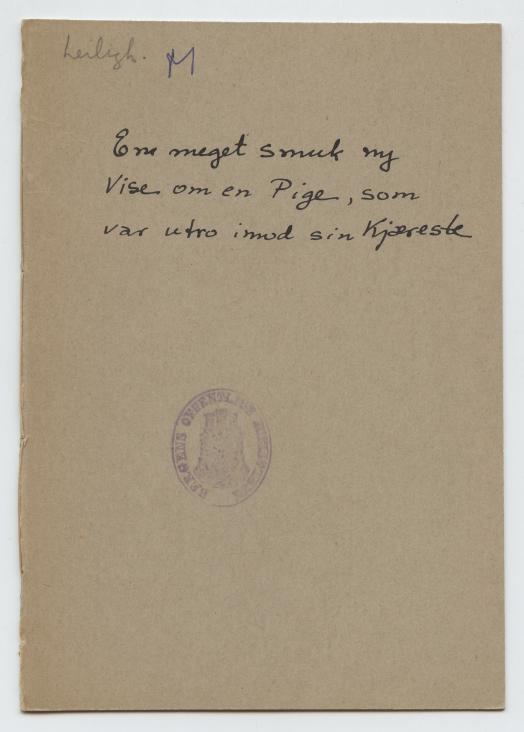 Leiligh. M
En meget smuk ny
Vise om en Pige, som
var utro imod sin Kjæreste
BERGENS OFFENTLIGE BIBLIOTHEK